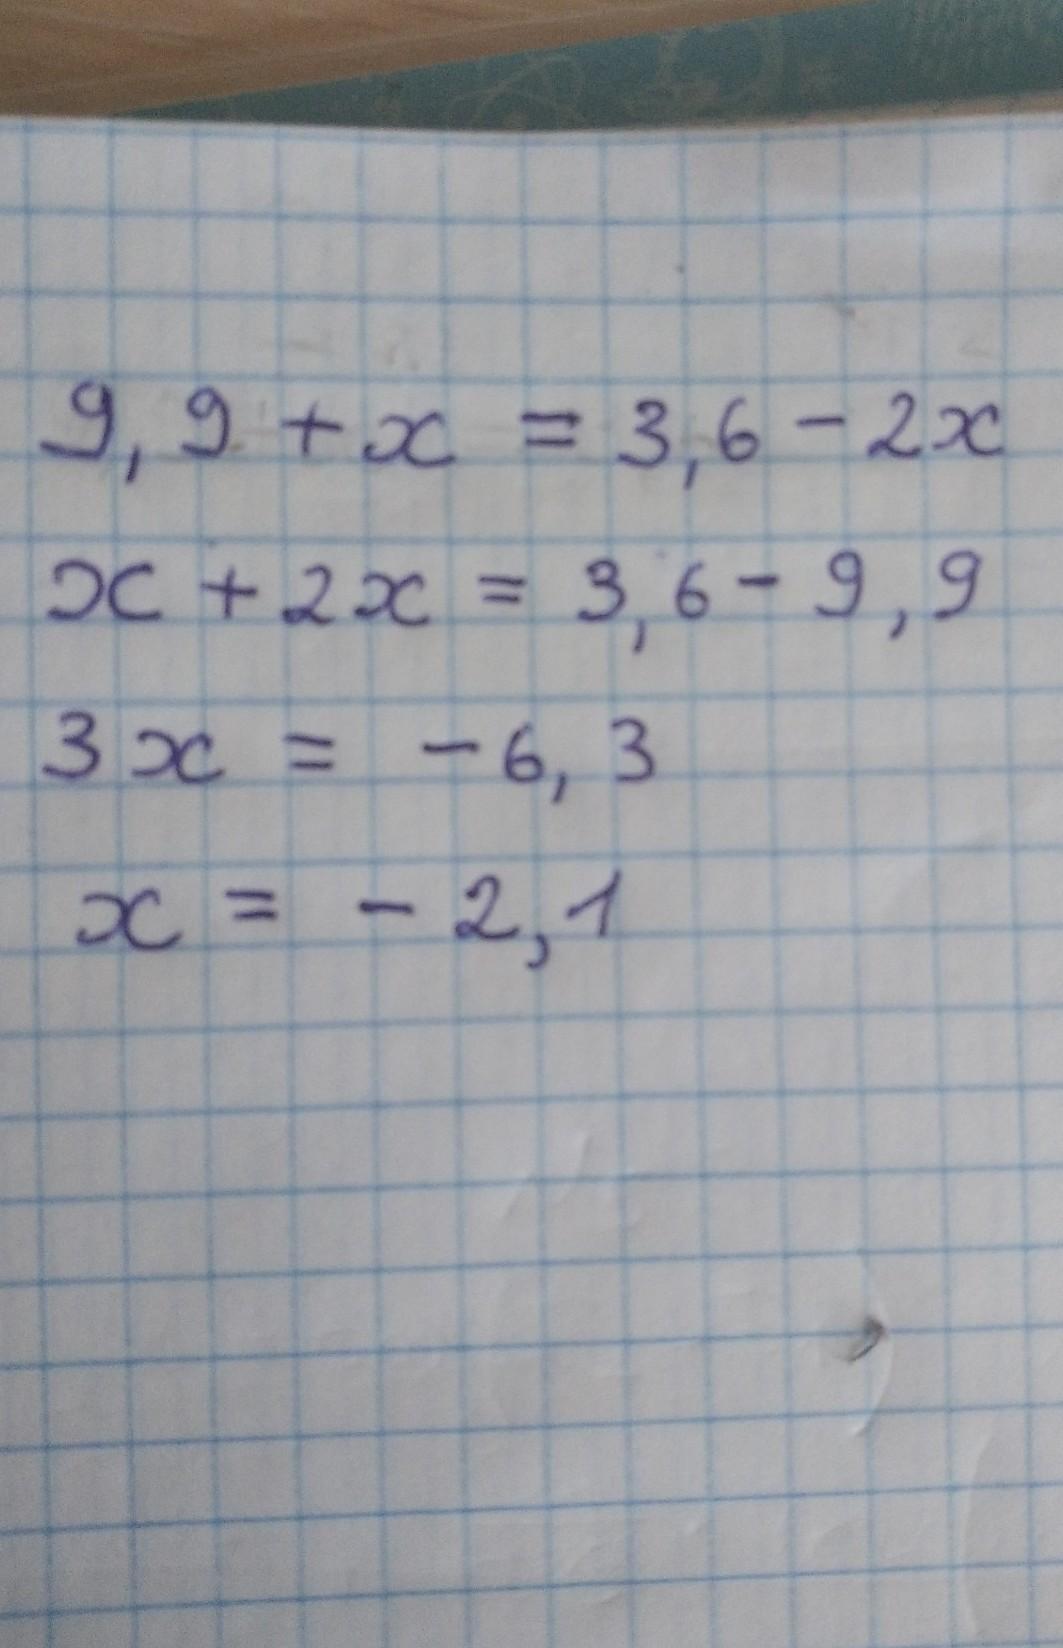 9,9 + x = 3,6 - 2x
x + 2x = 3,6 - 9,9
3x = -6,3
x = -2,1